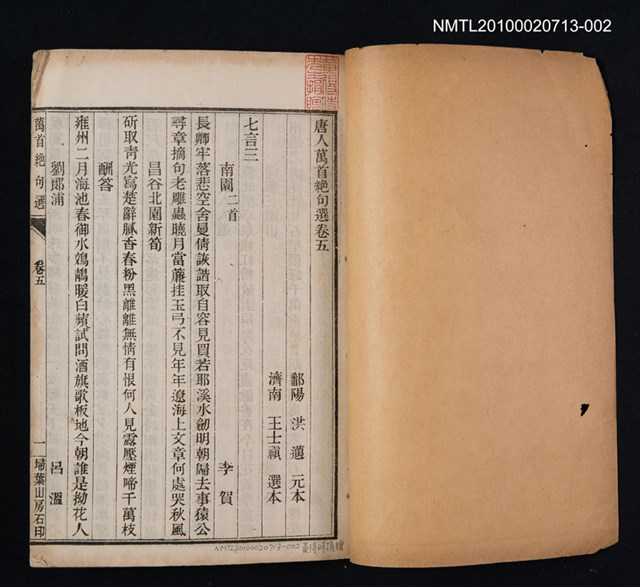 NMTL20100020713-002
唐人萬首絶句選卷五
鄱陽 洪 邁 元本
濟南 王士禛 選本
七言三
南園二首 李 賀
長卿牢落悲空舍曼倩詼諧取自容見買若耶溪水劒明朝歸去事猿公
尋章摘句老雕蟲曉月當簾挂玉弓不見年年遼海上文章何處哭秋風
昌谷北園新筍
斫取靑光寫楚辭膩香春粉黑離離無情有恨何人見露壓煙啼千萬枝
酬答
雍州二月海池春御水鵁鶄暖白蘋試問酒旗歌板地今朝誰是拗花人
劉郎浦 呂 溫
萬首絶句選 卷五 一 埽葉山房石印
NMTL20100020713-002